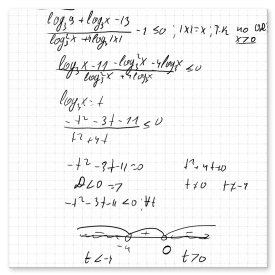 log₃9 + log₃x - 13
log₃²x + 4log₃|x| - 1 ≤ 0 ; |x| = x ; т.к. по
x > 0
log₃x - 11 - log₃²x - 4log₃x
log₃²x + 4log₃x ≤ 0
log₃x = t
-t² - 3t - 11
t² + 4t ≤ 0
-t² - 3t - 11 = 0 t² + 4t ≠ 0
D < 0 => t ≠ 0 t ≠ -4
-t² - 3t - 11 < 0 ; ∀t
- + -
-4 0
t < -4 t > 0